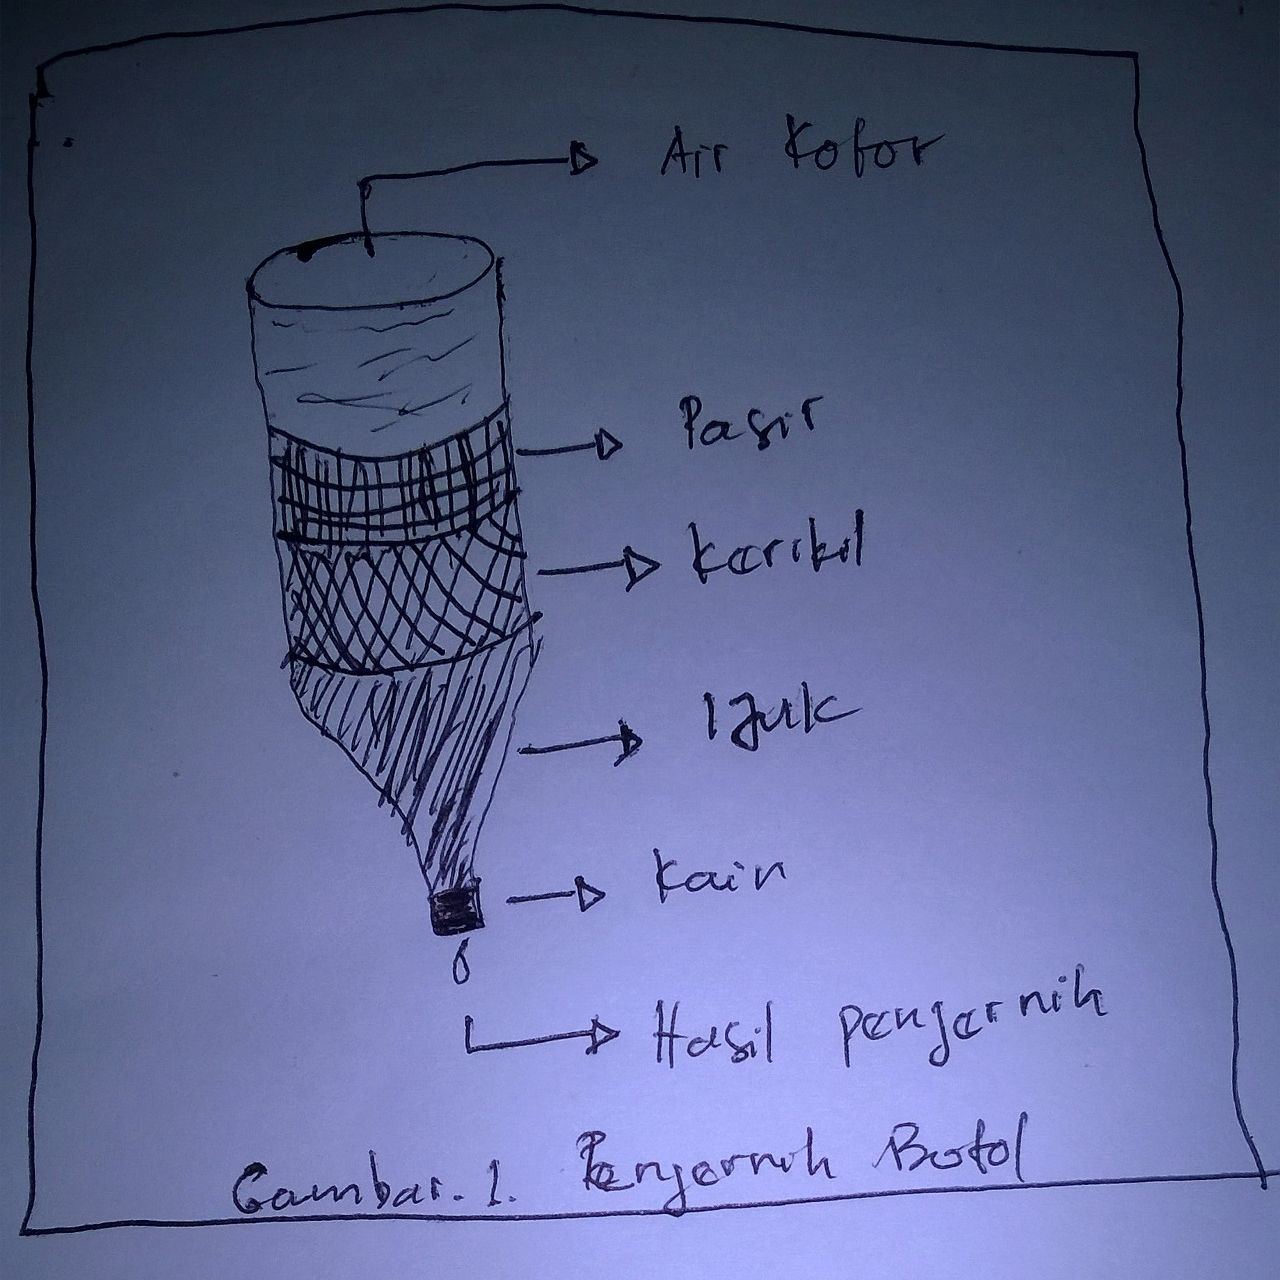 Air Kotor
Pasir
Kerikil
Ijuk
Kain
Hasil penjernih
Gambar. 1. Penjernih Botol